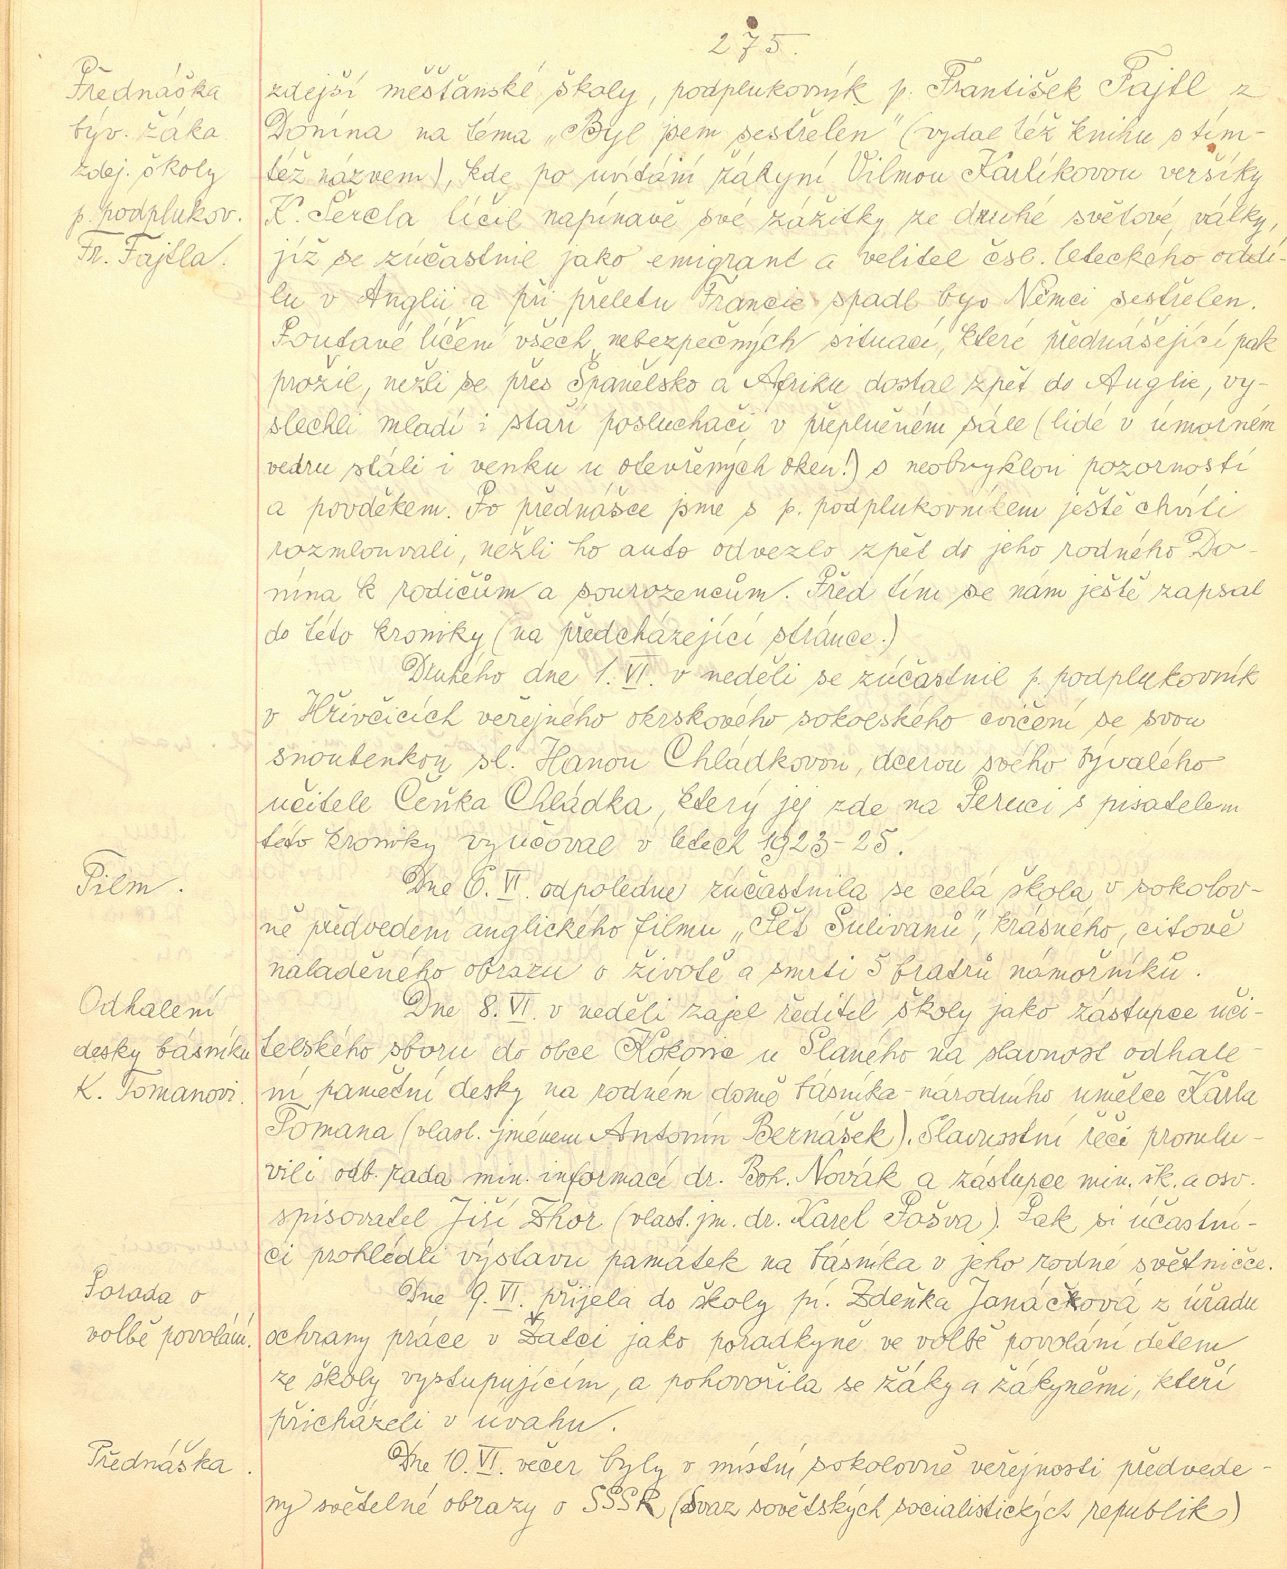 275.
Přednáška
býv. žáka
zdej. školy
p. podplukov.
Fr. Fajtla.
zdejší měšťanské školy, podplukovník p. František Fajtl z
Donína na téma „Byl jsem sestřelen" (vydal též knihu s tím-
též názvem), kde po uvítání žákyní Vilmou Karlíkovou veršíky
K. Šercla líčil napínavě své zážitky ze druhé světové války,
jíž se zúčastnil jako emigrant a velitel čsl. leteckého oddí-
lu v Anglii a při přeletu Francie spadl byv Němci sestřelen.
Poutavé líčení všech nebezpečných situací, které přednášející pak
prožil, nežli se přes Španělsko a Afriku dostal zpět do Anglie, vy-
slechli mladí i staří posluchači v přeplněném sále (lidé v úmorném
vedru stáli i venku u otevřených oken!) s neobvyklou pozorností
a povděkem. Po přednášce jsme s p. podplukovníkem ještě chvíli
rozmlouvali, nežli ho auto odvezlo zpět do jeho rodného Do-
nína k rodičům a sourozencům. Před tím se nám ještě zapsal
do této kroniky (na předcházející stránce.)
Druhého dne 1. VI. v neděli se zúčastnil p. podplukovník
v Hřivčicích veřejného okrskového sokolského cvičení se svou
snoubenkou sl. Hanou Chládkovou, dcerou svého bývalého
učitele Čeňka Chládka, který jej zde na Peruci s pisatelem
této kroniky vyučoval v letech 1923-25.
Film.
Dne 6. VI. odpoledne zúčastnila se celá škola v sokolov-
ně předvedení anglického filmu „Pět Sulivanů", krásného, citově
naladěného obrazu o životě a smrti 5 bratrů námořníků.
Odhalení
desky básníku
K. Tomanovi.
Dne 8. VI. v neděli zajel ředitel školy jako zástupce uči-
telského sboru do obce Kokovic u Slaného na slavnost odhale-
ní pamětní desky na rodném domě básníka-národního umělce Karla
Tomana (vlast. jménem Antonín Bernášek). Slavnostní řeči promlu-
vili odb. rada min. informací dr. Boh. Novák a zástupce min. šk. a osv.
spisovatel Jiří Zhor (vlast. jm. dr. Karel Pošva). Pak si účastní-
ci prohlédli výstavu památek na básníka v jeho rodné světničce.
Porada o
volbě povolání.
Dne 9. VI. přijela do školy pí. Zdeňka Janáčková z úřadu
ochrany práce v Žatci jako poradkyně ve volbě povolání dětem
ze školy vystupujícím, a pohovořila se žáky a žákyněmi, kteří
přicházeli v úvahu.
Přednáška.
Dne 10. VI. večer byly v místní sokolovně veřejnosti předvede-
ny světelné obrazy o SSSR (Svaz sovětských socialistických republik)